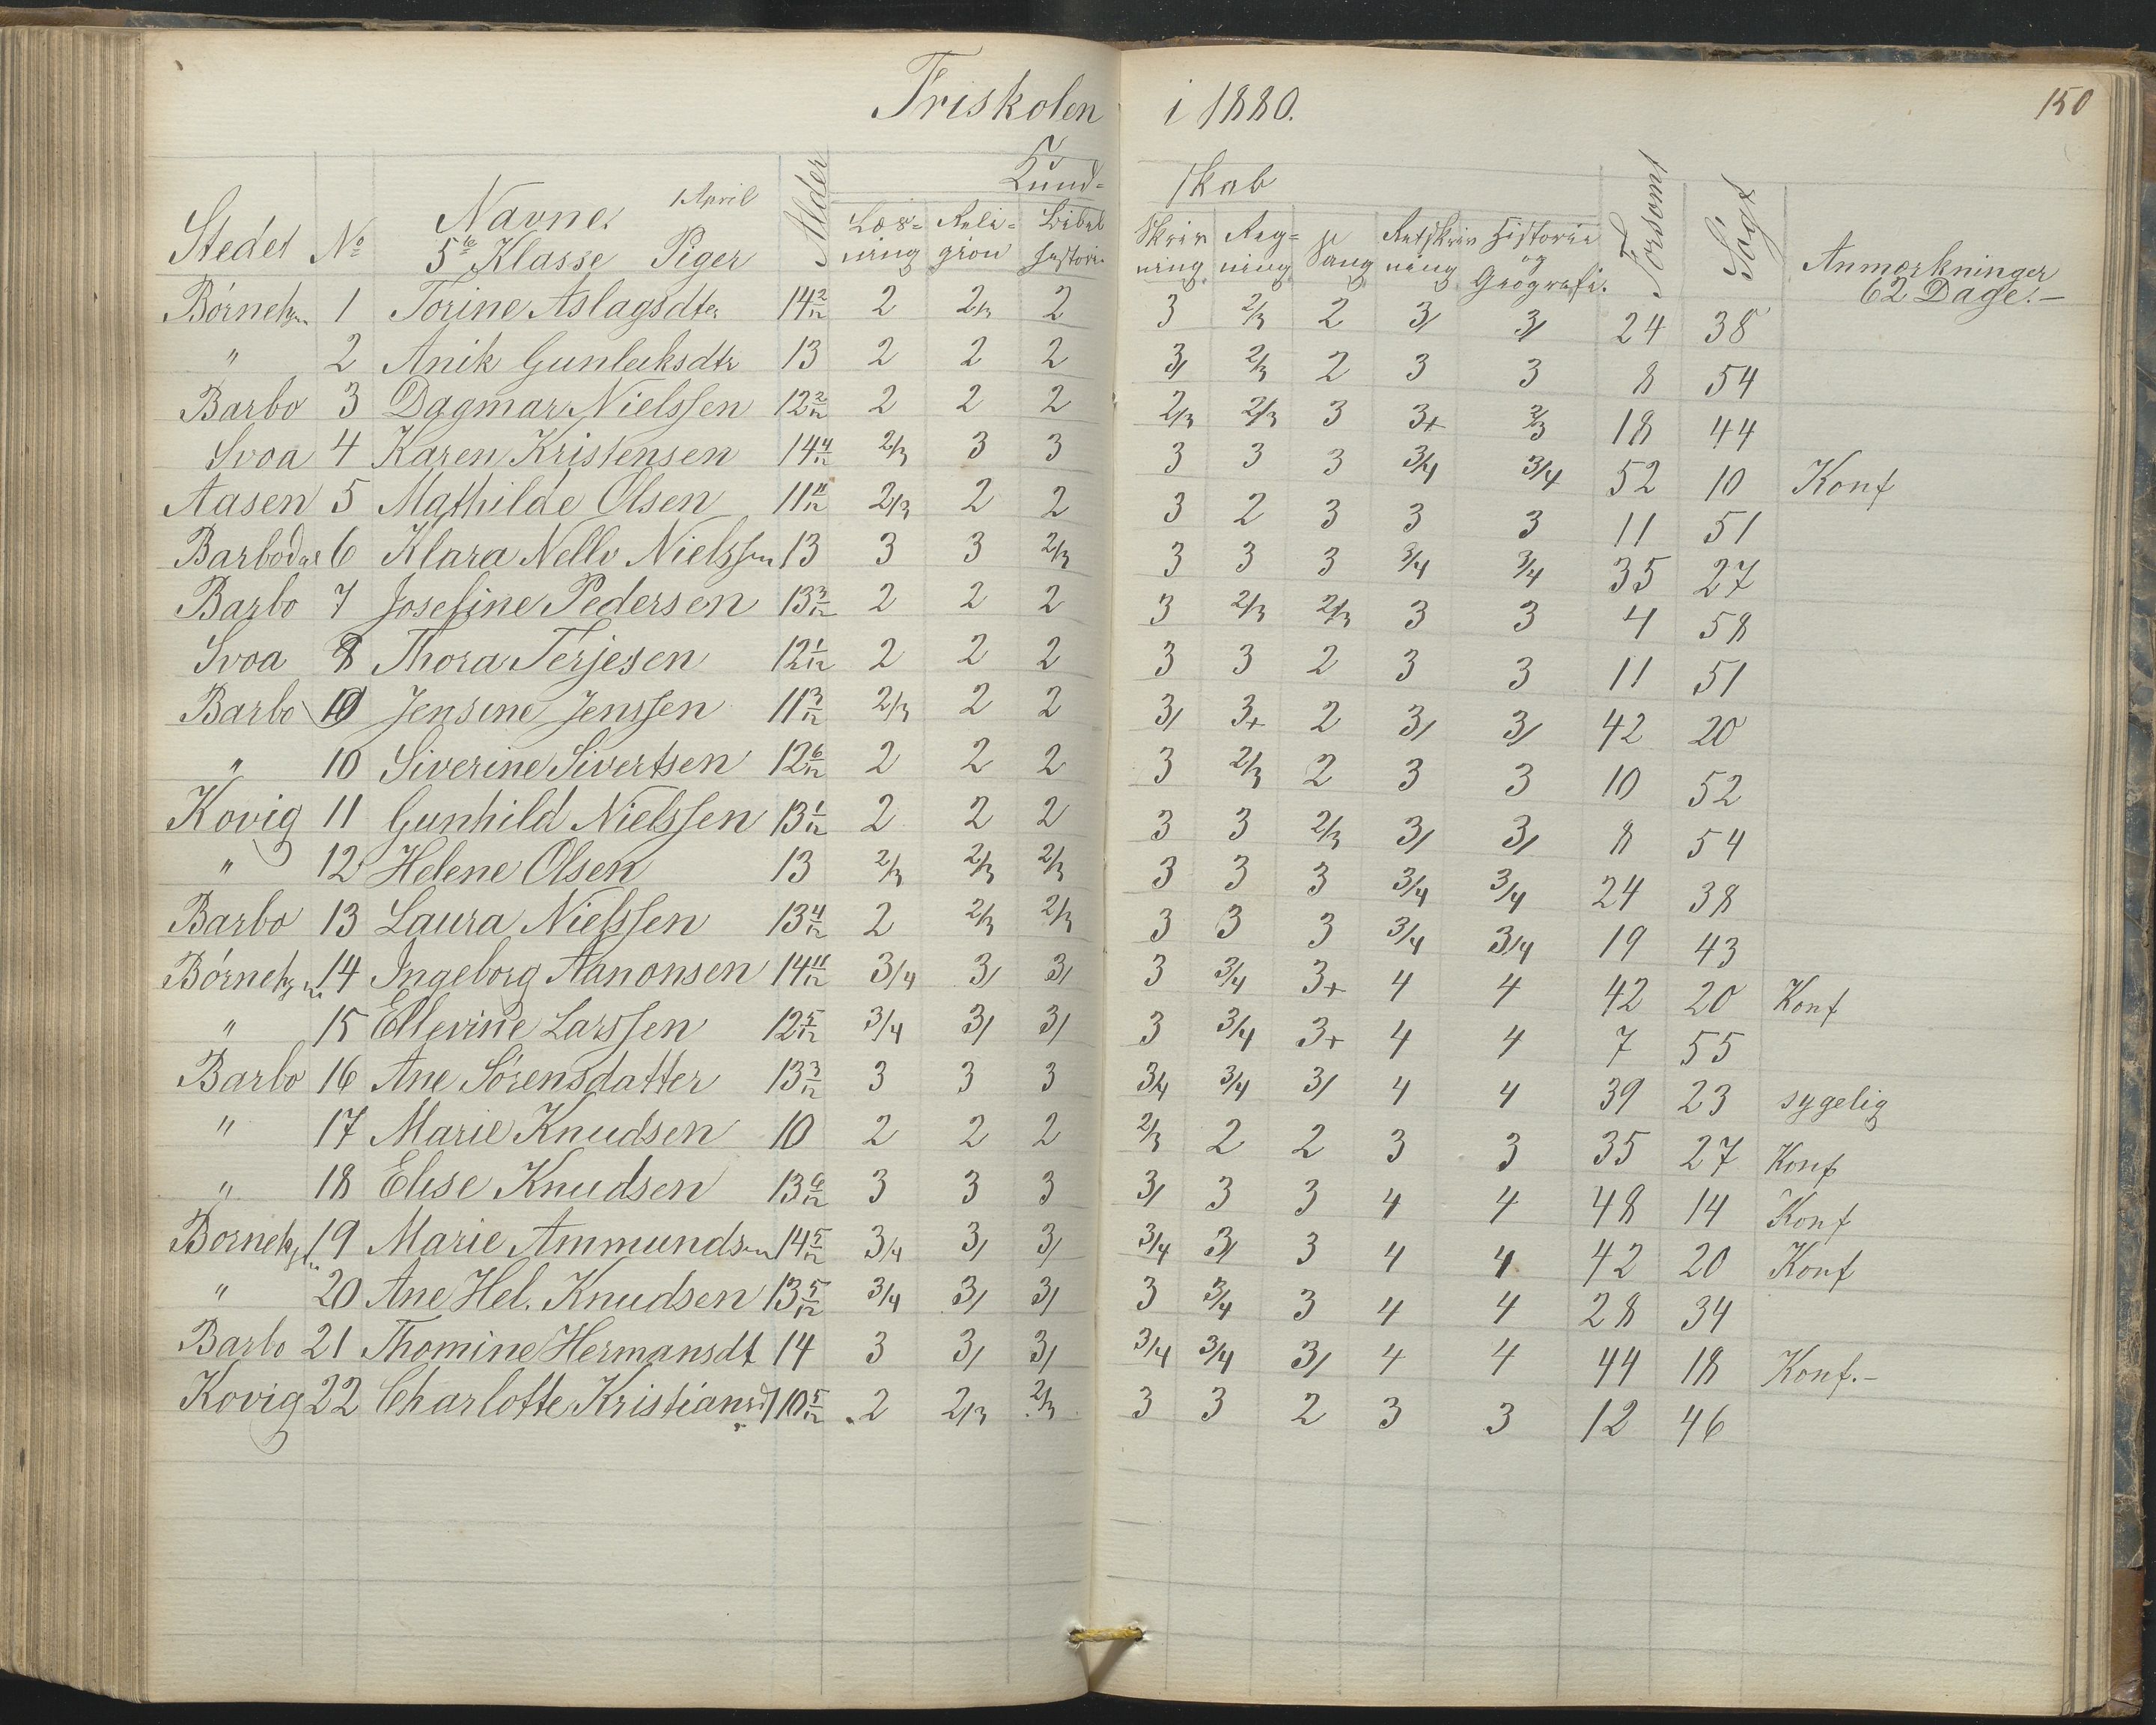 Friskolen i 1880. 150
Kund- skab
Stedet No Navne. 1 April Alder Læs- Reli- Bibel Skriv Reg- Sang Retskriv Historie Forsømt Søgt Anmærkninger
5te Klasse Piger ning gion historie ning ning ning og Geografi. 62 Dage.-
Børnehjm 1 Torine Aslagsdter 14 2/12 2 2/3 2 3 2/3 2 3/ 3/ 24 38
" 2 Anik Gunleiksdtr 13 2 2 2 3/ 2/3 2 3 3 8 54
Barbo 3 Dagmar Nielssen 12 2/12 2 2 2 2/3 2/3 3 3+ 2/3 18 44
Svoa 4 Karen Kristensen 14 4/12 2/3 3 3 3 3 3 3/4 3/4 52 10 Konf
Aasen 5 Mathilde Olsen 11 11/12 2/3 2 2 3 2 3 3 3 11 51
Barbodal 6 Klara Nellv Nielssen 13 3 3 2/3 3 3 3 3/4 3/4 35 27
Barbo 7 Josefine Pedersen 13 3/12 2 2 2 3 2/3 2/3 3 3 4 58
Svoa 8 Thora Terjesen 12 1/12 2 2 2 3 3 2 3 3 11 51
Barbo Jensine Jenssen 11 3/12 2/3 2 2 3/ 3+ 2 3/ 3/ 42 20
" 10 Siverine Sivertsen 12 6/12 2 2 2 3 2/3 2 3 3 10 52
Kovig 11 Gunhild Nielssen 13 1/12 2 2 2 3 3 2/3 3/ 3/ 8 54
" 12 Helene Olsen 13 2/3 2/3 2/3 3 3 3 3/4 3/4 24 38
Barbo 13 Laura Nielssen 13 4/12 2 2/3 2/3 3 3 3 3/4 3/4 19 43
Børnehjm 14 Ingeborg Aanonsen 14 11/12 3/4 3/ 3/ 3 3/4 3+ 4 4 42 20 Konf
" 15 Ellevine Larssen 12 5/12 3/4 3/ 3/ 3 3/4 3+ 4 4 7 55
Barbo 16 Ane Sørensdatter 13 3/12 3 3 3 3/4 3/4 3/ 4 4 39 23 sygelig
" 17 Marie Knudsen 10 2 2 2 2/3 2 2 3 3 35 27 Konf
" 18 Elise Knudsen 13 6/12 3 3 3 3/ 3 3 4 4 48 14 Konf
Bornehjm 19 Marie Ammundsen 14 5/12 3/4 3/ 3/ 3/4 3/ 3 4 4 42 20 Konf
" 20 Ane Hel. Knudsen 13 5/12 3/4 3/ 3/ 3 3/4 3 4 4 28 34
Barbo 21 Thomine Hermansdt 14 3 3/ 3/ 3/4 3/4 3/ 4 4 44 18 Konf.-
Kovig 22 Charlotte Kristiansdt 10 5/12 2 2/3 2/3 3 3 2 3 3 12 46